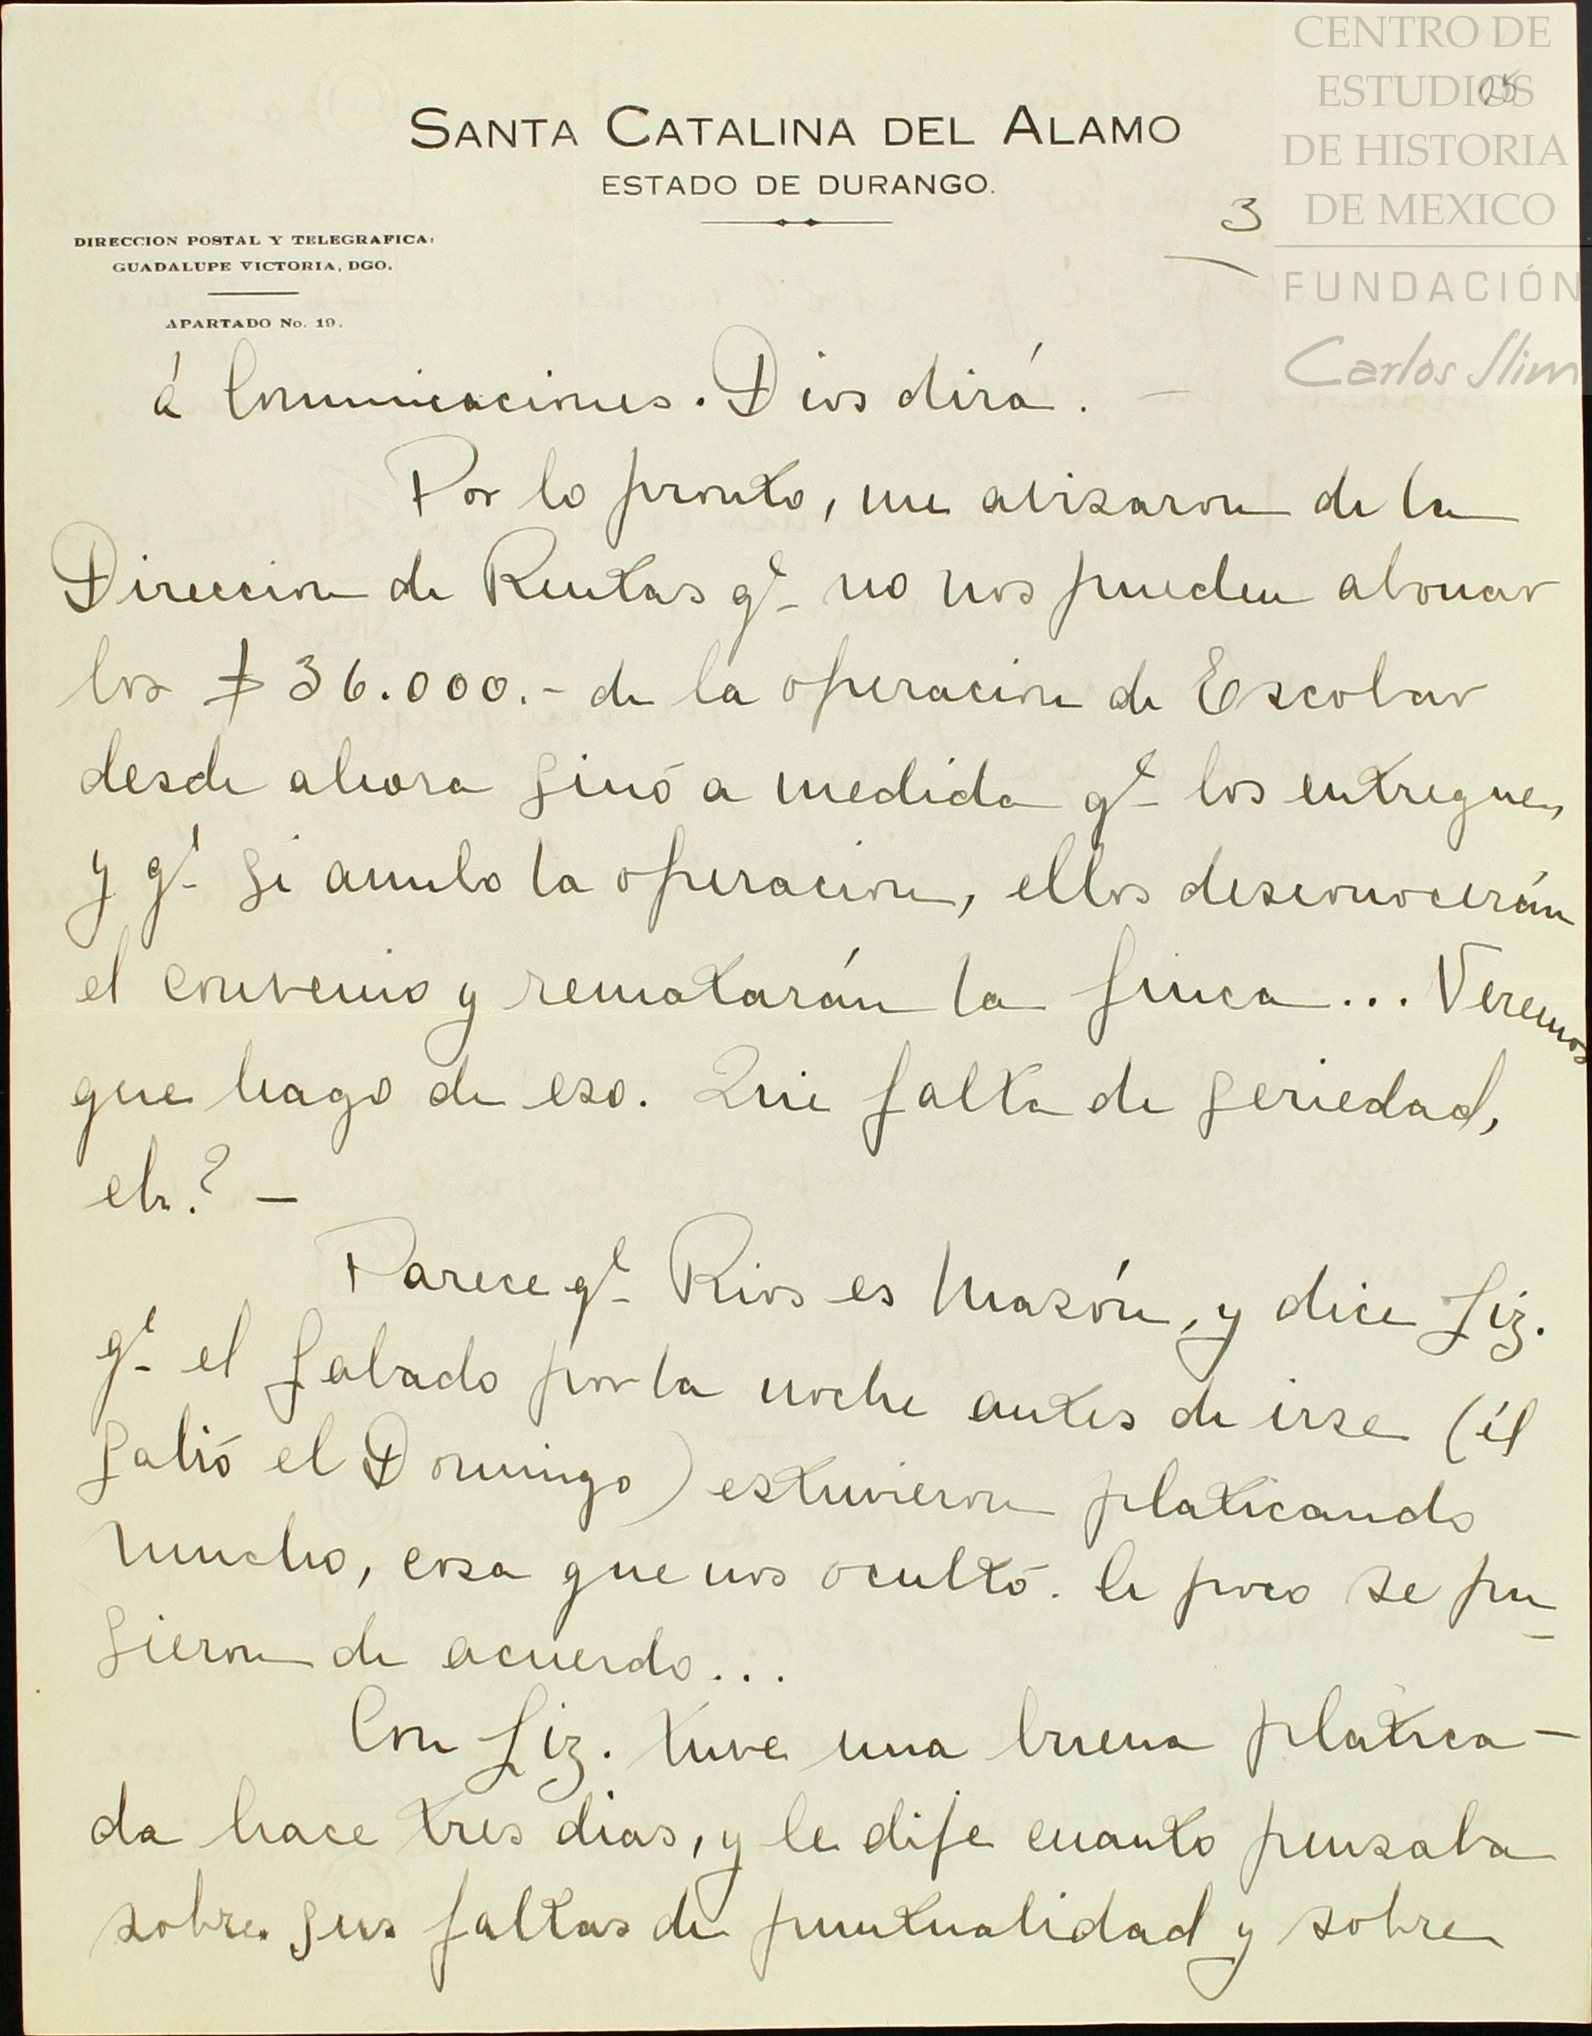 CENTRO DE
ESTUDIOS
DE HISTORIA
DE MEXICO
FUNDACIÓN
Carlos Slim
25
SANTA CATALINA DEL ALAMO
ESTADO DE DURANGO.
3
DIRECCION POSTAL Y TELEGRAFICA:
GUADALUPE VICTORIA, DGO.
APARTADO No. 19.
á Comunicaciones. Dios dirá. —
Por lo pronto, me avisaron de la
Direccion de Rentas qe no nos pueden abonar
los $ 36.000.- de la operacion de Escobar
desde ahora sinó a medida qe los entreguen,
y qe si anulo la operacion, ellos desconocerán
el convenio y rematarán la finca... Veremos
que hago de eso. Que falta de seriedad,
eh.? —
Parece qe Rios es Masón, y dice Liz.
qe el Sabado por la noche antes de irse (él
salió el Domingo) estuvieron platicando
mucho, cosa que nos ocultó. Ce poco se pu-
sieron de acuerdo...
Con Liz. tuve una buena platica-
da hace tres dias, y le dije cuanto pensaba
sobre sus faltas de puntualidad y sobre